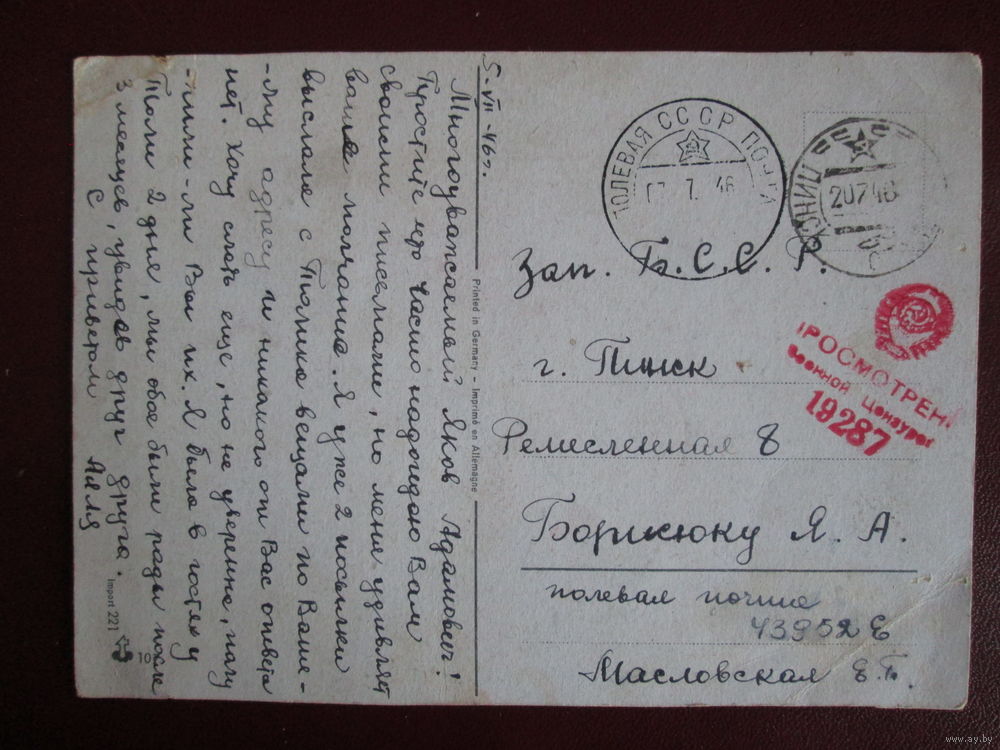 5-VII-46г.
Многоуважаемый Яков Адамович!
Простите что часто надоедаю Вам
своими письмами, но меня удивляет
ваше молчание. Я уже 2 посылки
выслала с Полика вещами по Ваше-
-му адресу и никакого от Вас ответа
нет. Хочу слать еще, но не уверенна, полу
-чили-ли Вы их. Я была в гостях у
Толи 2 дня, мы обое были рады после
3 месяцев, увидав друг друга.
С приветом
Аля
Printed in Germany - Imprimé en Allemagne
Import 221
10
ПОЛЕВАЯ ПОЧТА СССР
7. 46
ПИНСК
20 7 46
Зап. Б.С.С.Р.
г. Пинск
Ремесленная 8
Борисюку Я. А.
полевая почта
43952 Е
Масловская Е.Г.
ПРОСМОТРЕНО
Военной Цензурой
19287
www.ay.by